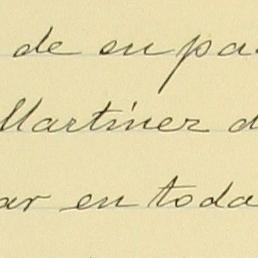 de en pa
Martinez d
ar en toda